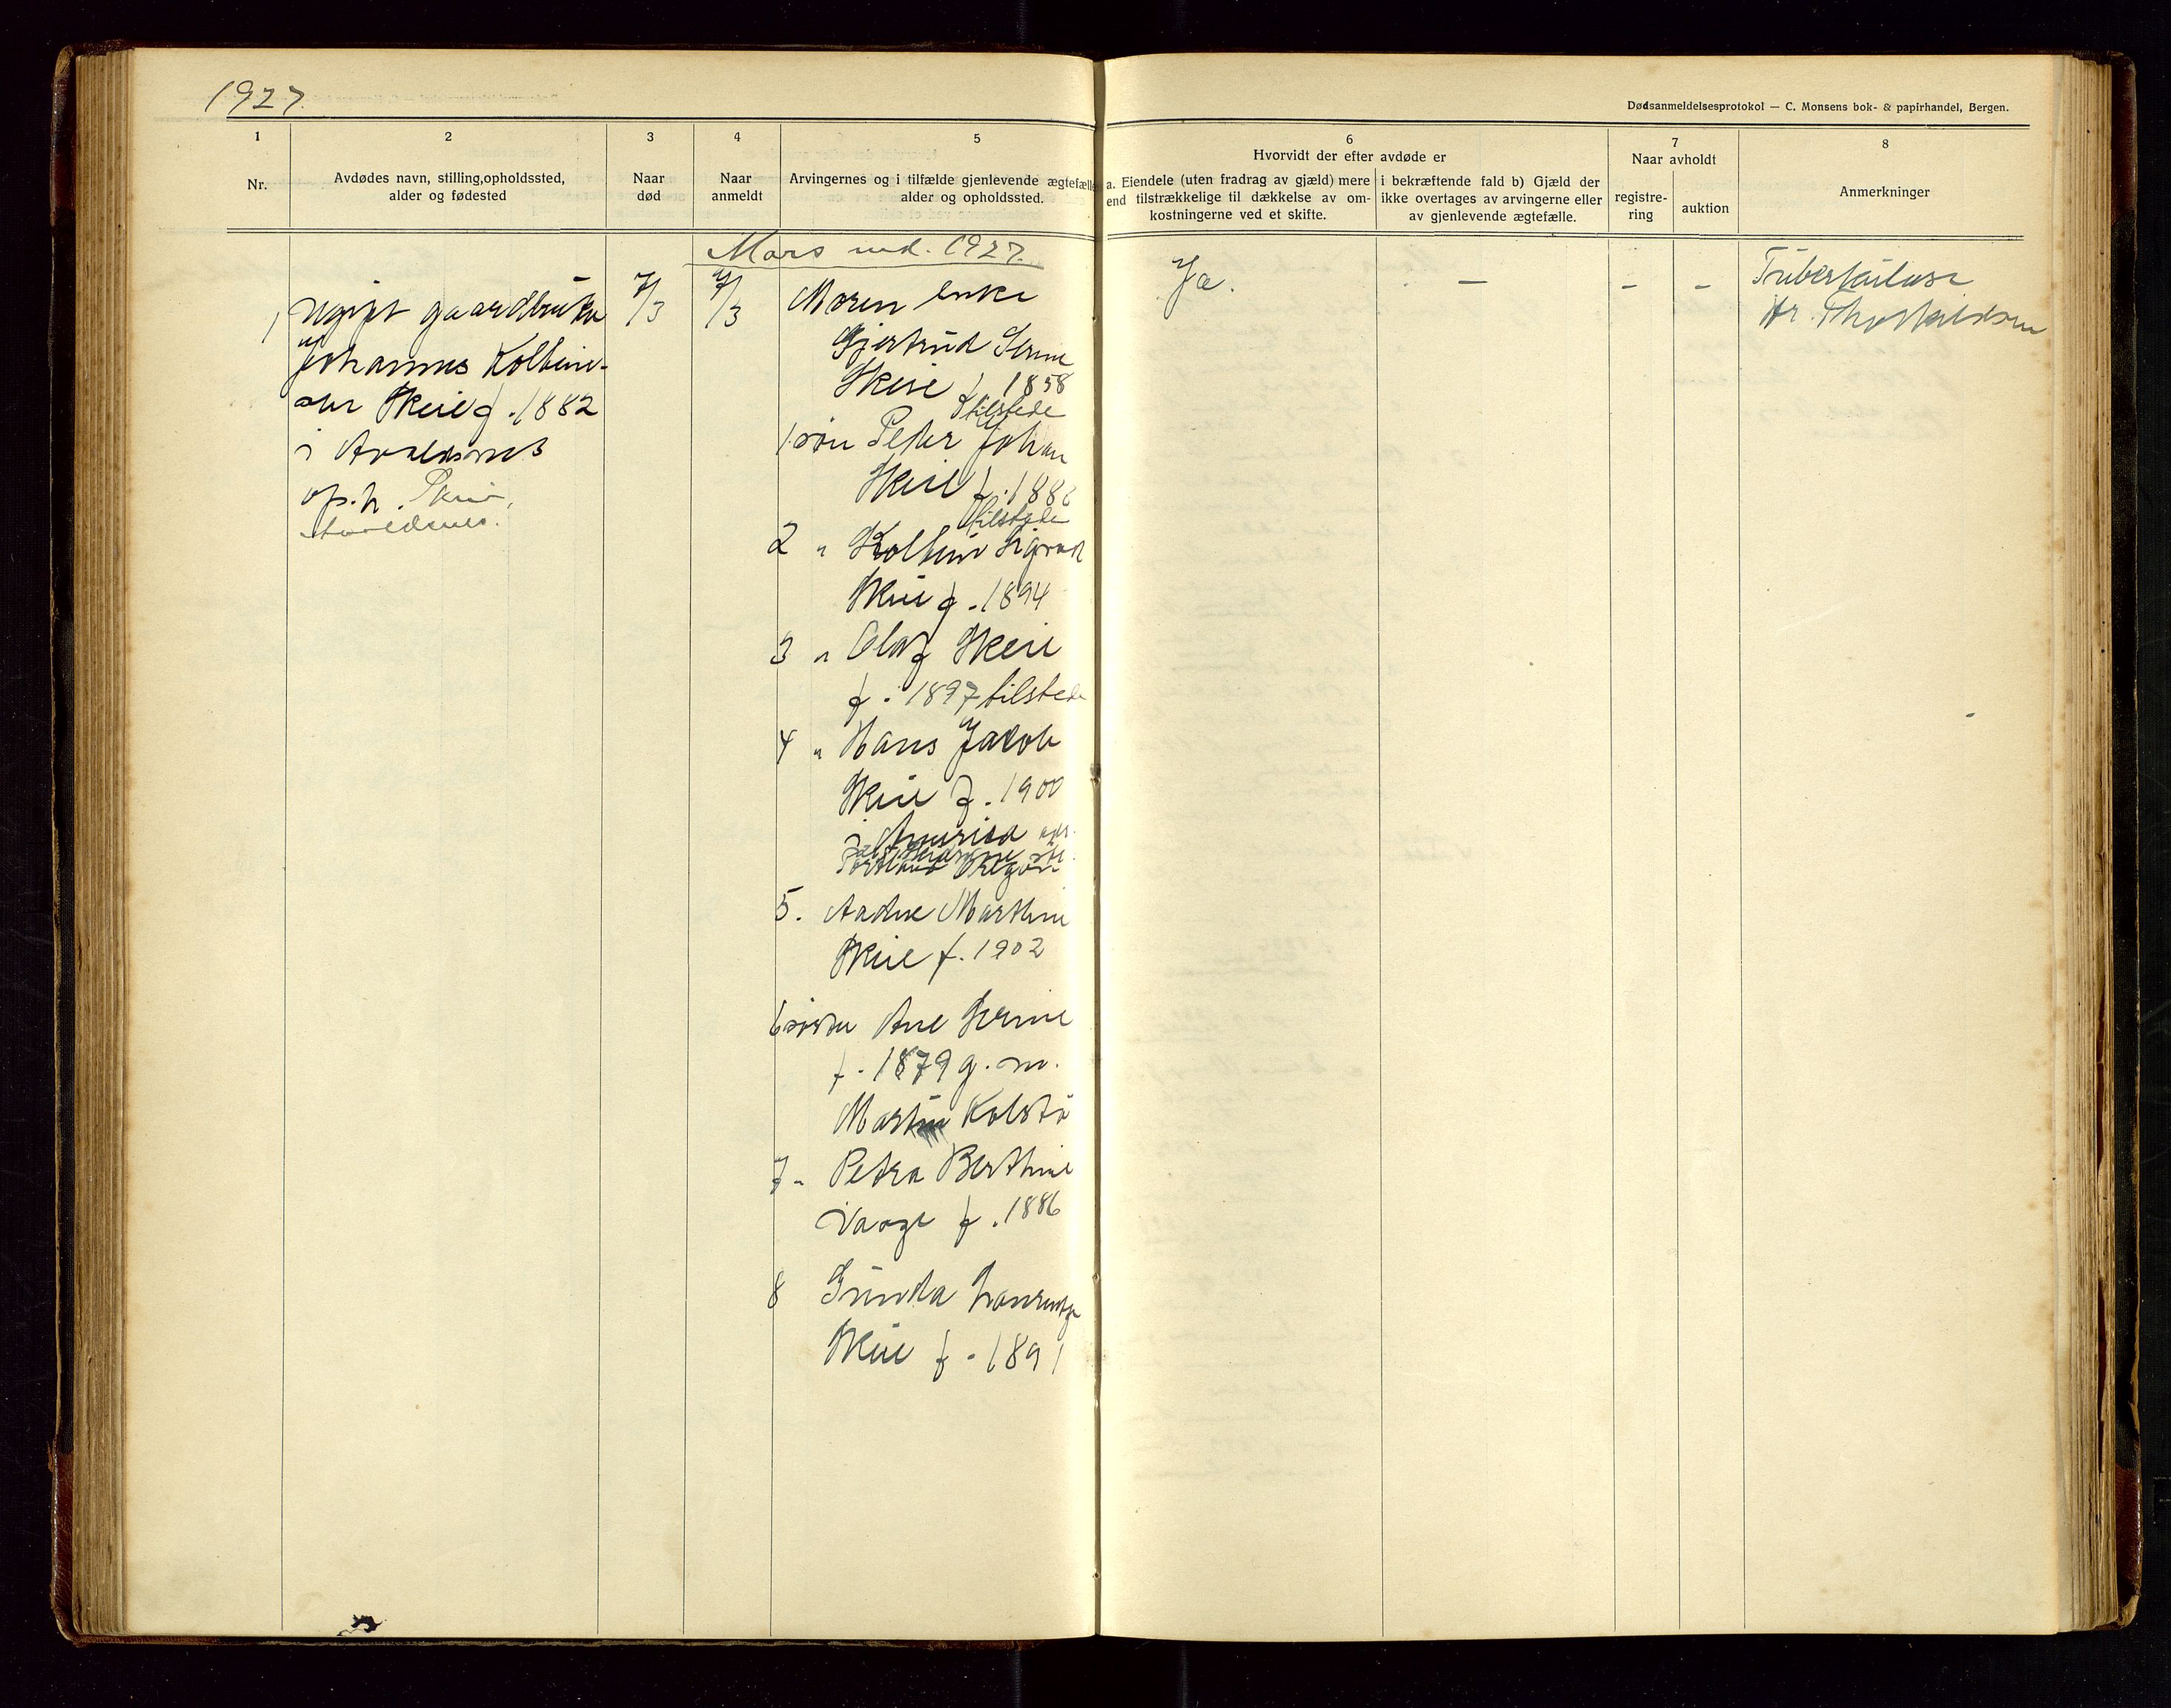 1927.
Dødsanmeldelsesprotokol — C. Monsens bok- & papirhandel, Bergen.
1
2
3
4
5
6
7
8
Nr.
Avdødes navn, stilling, opholdssted,
alder og fødested
Naar
død
Naar
anmeldt
Arvingernes og i tilfælde gjenlevende ægtefælle
alder og opholdssted.
Hvorvidt der efter avdøde er
a. Eiendele (uten fradrag av gjæld) mere
end tilstrækkelige til dækkelse av om-
kostningerne ved et skifte.
i bekræftende fald b) Gjæld der
ikke overtages av arvingerne eller
av gjenlevende ægtefælle.
Naar avholdt
registre-
ring
auktion
Anmerkninger
Mars md. 1927.
1 ugift gaardbruker
Johannes Kolbein-
sen Skeie f. 1882
i Avaldsnes
op.h. Skeie,
Avaldsnes.
7/3
7/3
Moren enke
Gjertrud Serine
Skeie f. 1858
tilstede
1. søn Peder Johan
Skeie f. 1888
tilstede
2 " Kolbein Sigvard
Skeie f. 1894
3 " Olaf Skeie
f. 1897 tilstede
4 " Hans Jakob
Skeie f. 1900
i America adr.
Portland Oregon
5. Aadne Marthin
Skeie f. 1902
6 søster Ane Serine
f. 1879 g. m.
Martin Kolstø
7 - Petra Berthine
Vaage f. 1886
8 Gunda
Skeie f. 1891
Ja.
—
-
-
Tuberkulose
dr. Thorkildsen